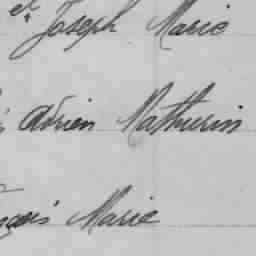 et Joseph Marie
Adrien Mathurin
nçois Marie